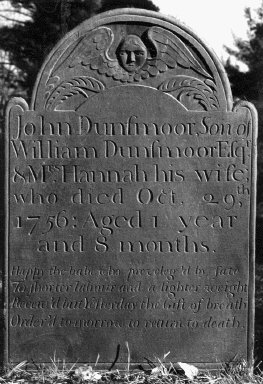 John Dunſmoor, Son of
William Dunſmoor Esqr
& Mrs Hannah his wife;
who died Oct. 29th
1756: Aged 1 year
and 8 months.
Happy the babe who priveleg'd by fate
To shorter labour and a lighter weight
Receiv'd but Yeſterday the Gift of breath
Order'd to morrow to return to death.